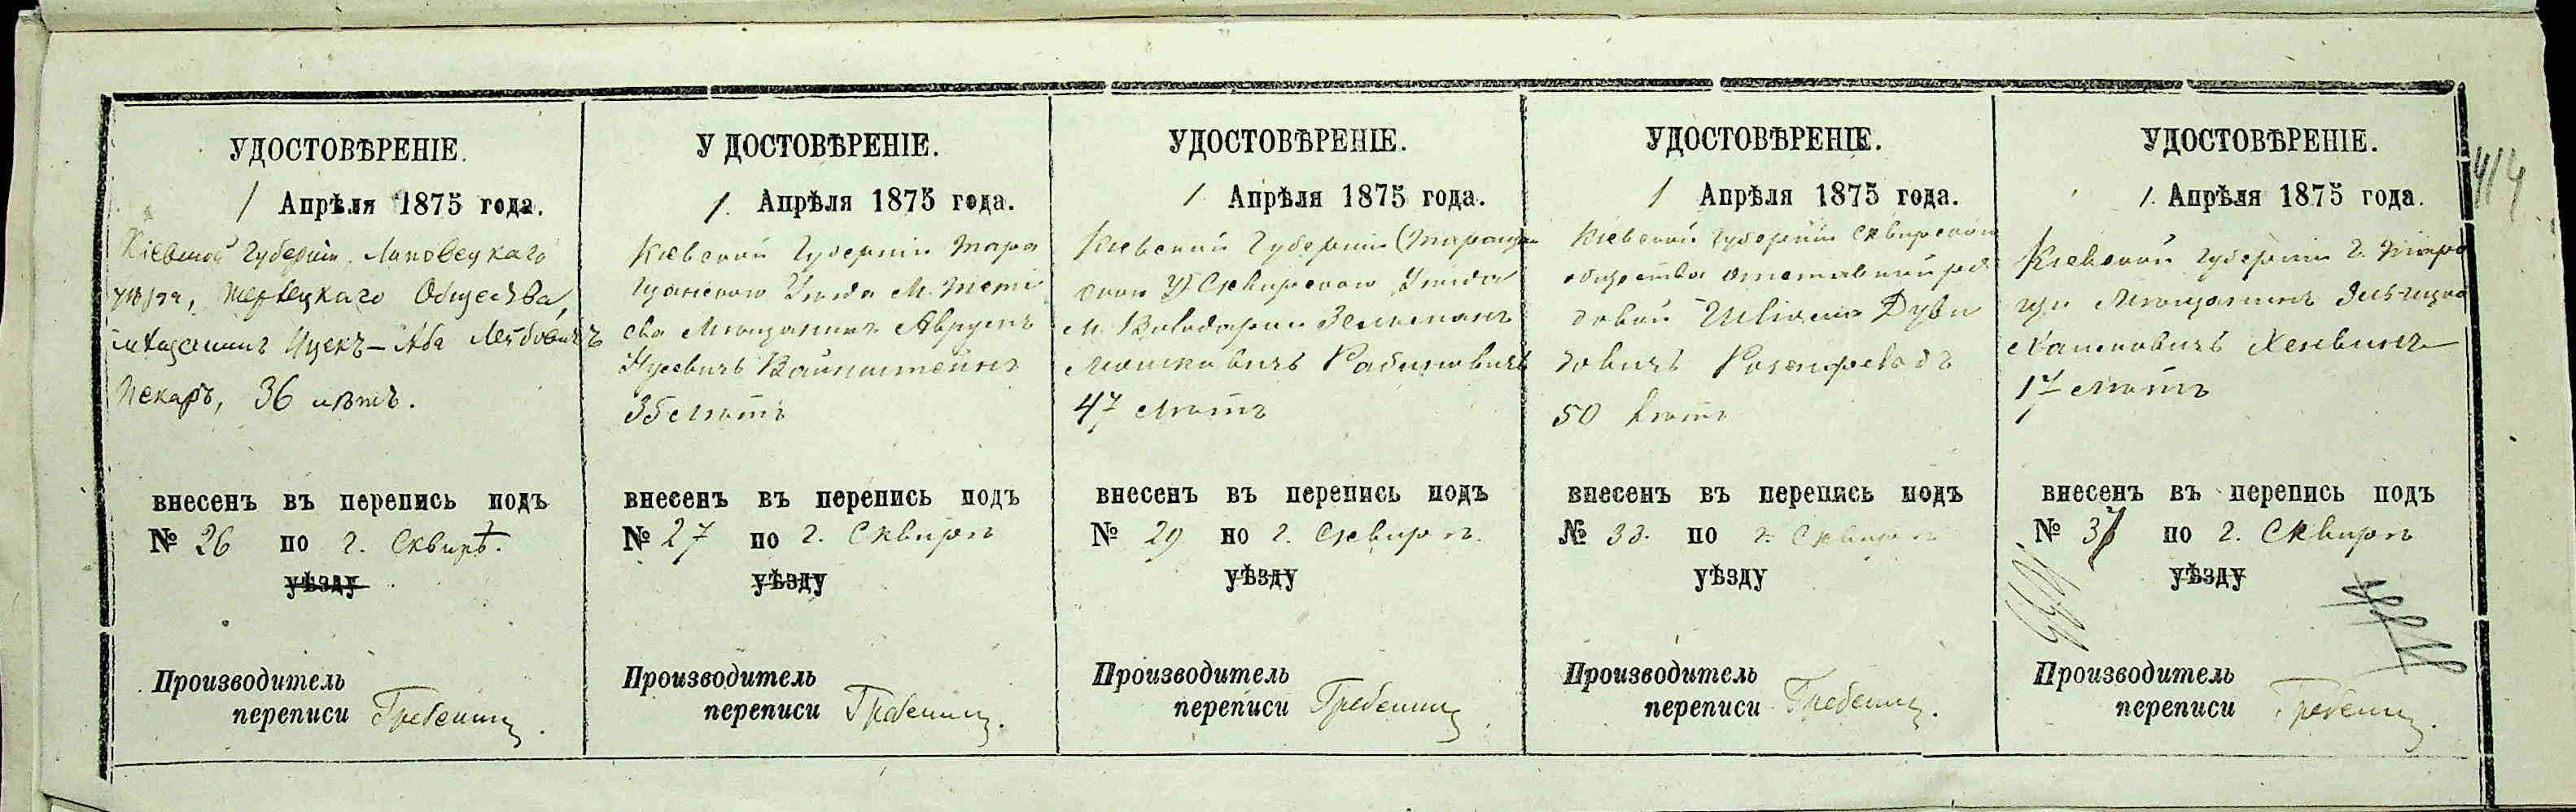 УДОСТОВѢРЕНІЕ.
1 Апрѣля 1875 года.
Кіевской Губерніи, Липовецкаго
уѣзда, Общества,
мѣщанинъ Ицекъ-Аба Лейбовичъ
Пекаръ, 36 лѣтъ.
внесенъ въ перепись подъ
№ 26 по г. Сквирѣ.
уѣзду
Производитель
переписи
У ДОСТОВѢРЕНІЕ.
1. Апрѣля 1875 года.
Кіевской Губерніи Тара
щанского Уѣзда М. Тетi
ева Мѣщанинъ Аврумъ
Нусевичъ Вайнштейнъ
35 лѣтъ
внесенъ въ перепись подъ
№ 27 по г. Сквирѣ
уѣзду
Производитель
переписи
УДОСТОВѢРЕНІЕ.
1 Апрѣля 1875 года.
Кіевской Губерніи (Таращан
ской У) Сквирского Уѣзда
М. Володарки Зельманъ
Мошковичъ Рабиновичъ
47 лѣтъ
внесенъ въ перепись подъ
№ 29 по г. Сквирѣ.
уѣзду
Производитель
переписи
УДОСТОВѢРЕНІЕ.
1 Апрѣля 1875 года.
Кіевской Губерніи Сквирского
общества отставной ря
довой Дуви
довичъ
50 лѣтъ
внесенъ въ перепись подъ
№ 33. по г. Сквирѣ
уѣзду
Производитель
переписи
УДОСТОВѢРЕНІЕ.
1. Апрѣля 1875 года.
Кіевской Губерніи г. Тара
щи Мѣщанинъ
Хаимовичъ
17 лѣтъ
внесенъ въ перепись подъ
№ по г. Сквирѣ
уѣзду
Производитель
переписи